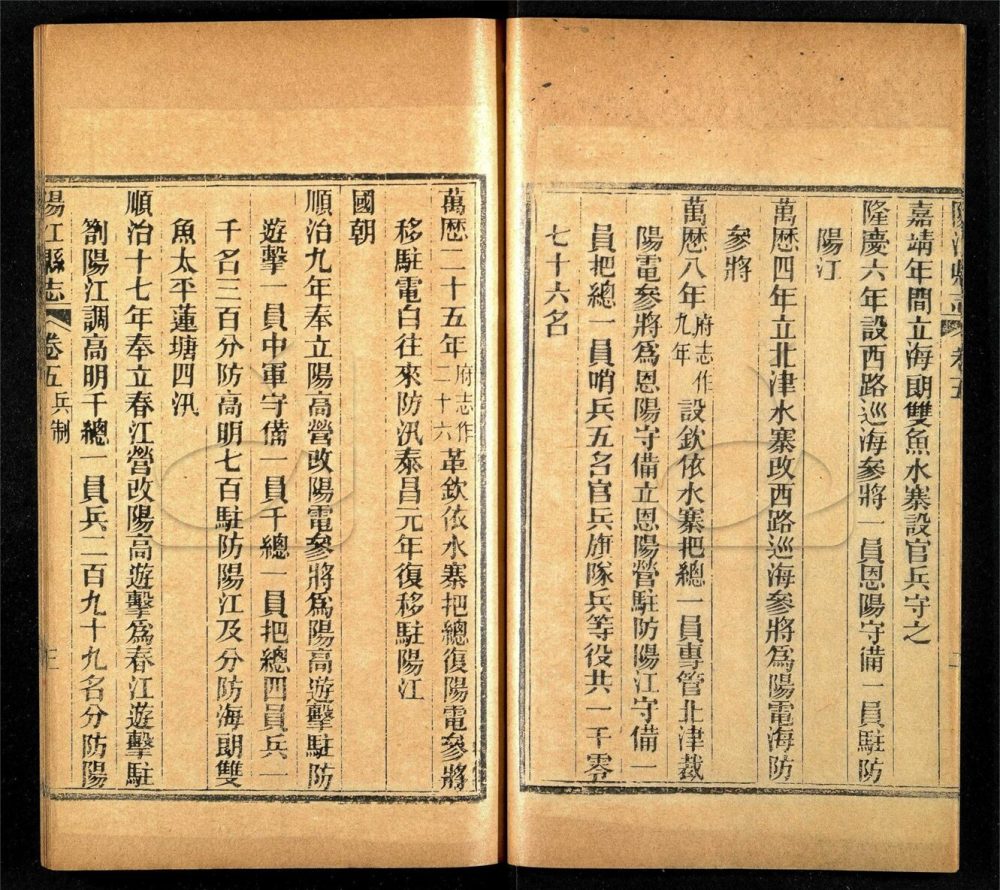 陽江縣志 卷五
嘉靖年間立海朗雙魚水寨設官兵守之
隆慶六年設西路巡海參將一員恩陽守備一員駐防
陽江
萬歷四年立北津水寨改西路巡海參將為陽電海防
參將
萬歷八年府志作九年設欽依水寨把總一員專管北津裁
陽電參將為恩陽守備立恩陽營駐防陽江守備一
員把總一員哨兵五名官兵旗隊兵等役共一千零
七十六名
萬歷二十五年府志作二十六革欽依水寨把總復陽電參將
移駐電白往來防汛泰昌元年復移駐陽江
國朝
順治九年奉立陽高營改陽電參將為陽高遊擊駐防
遊擊一員中軍守備一員千總一員把總四員兵一
千名三百分防高明七百駐防陽江及分防海朗雙
魚太平蓮塘四汛
順治十七年奉立春江營改陽高遊擊為春江遊擊駐
劄陽江調高明千總一員兵二百九十九名分防陽
陽江縣志 卷五 兵制 三